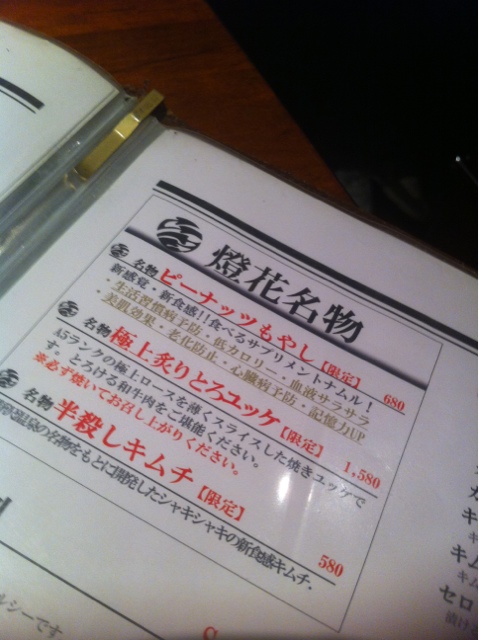 燈花名物
名物 ピーナッツもやし【限定】 680
新感覚・新食感!!食べるサプリメントナムル!
・生活習慣病予防・低カロリー・血液サラサラ
美肌効果・老化防止・心臓病予防・記憶力UP
名物 極上炙りとろユッケ【限定】 1,580
A5ランクの極上ロースを薄くスライスした焼きユッケで
す。とろける和牛肉をご堪能ください。
※必ず焼いてお召し上がりください。
名物 半殺しキムチ【限定】 580
温泉の名物をもとに開発したシャキシャキの新食感キムチ.
ルシーです
キ
キム
セロ